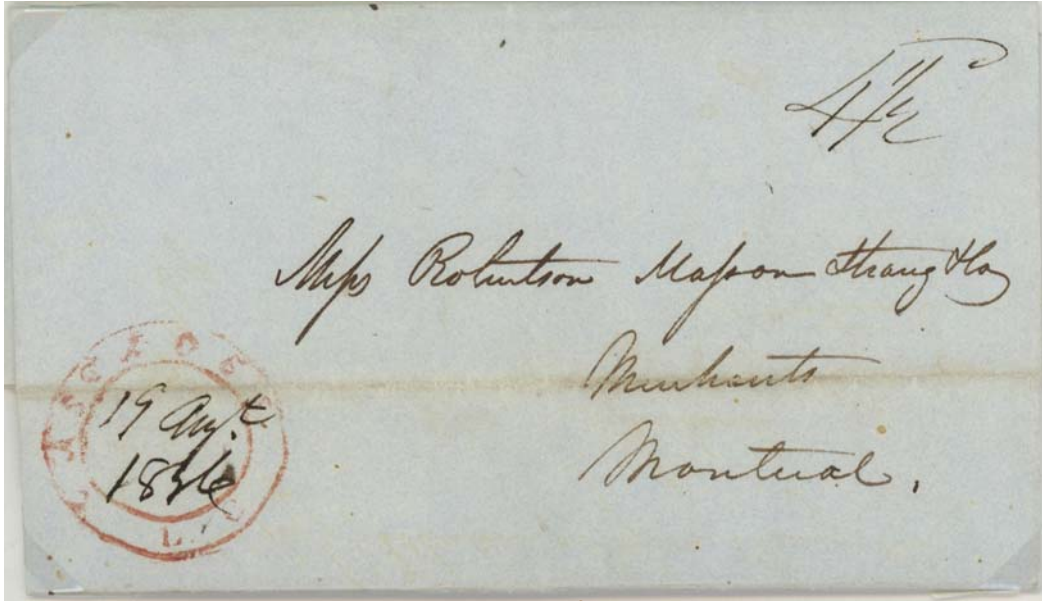 4½
Messrs Robertson Masson Strang & Co
Merchants
Montreal.
19 Augt.
1836
L.C.